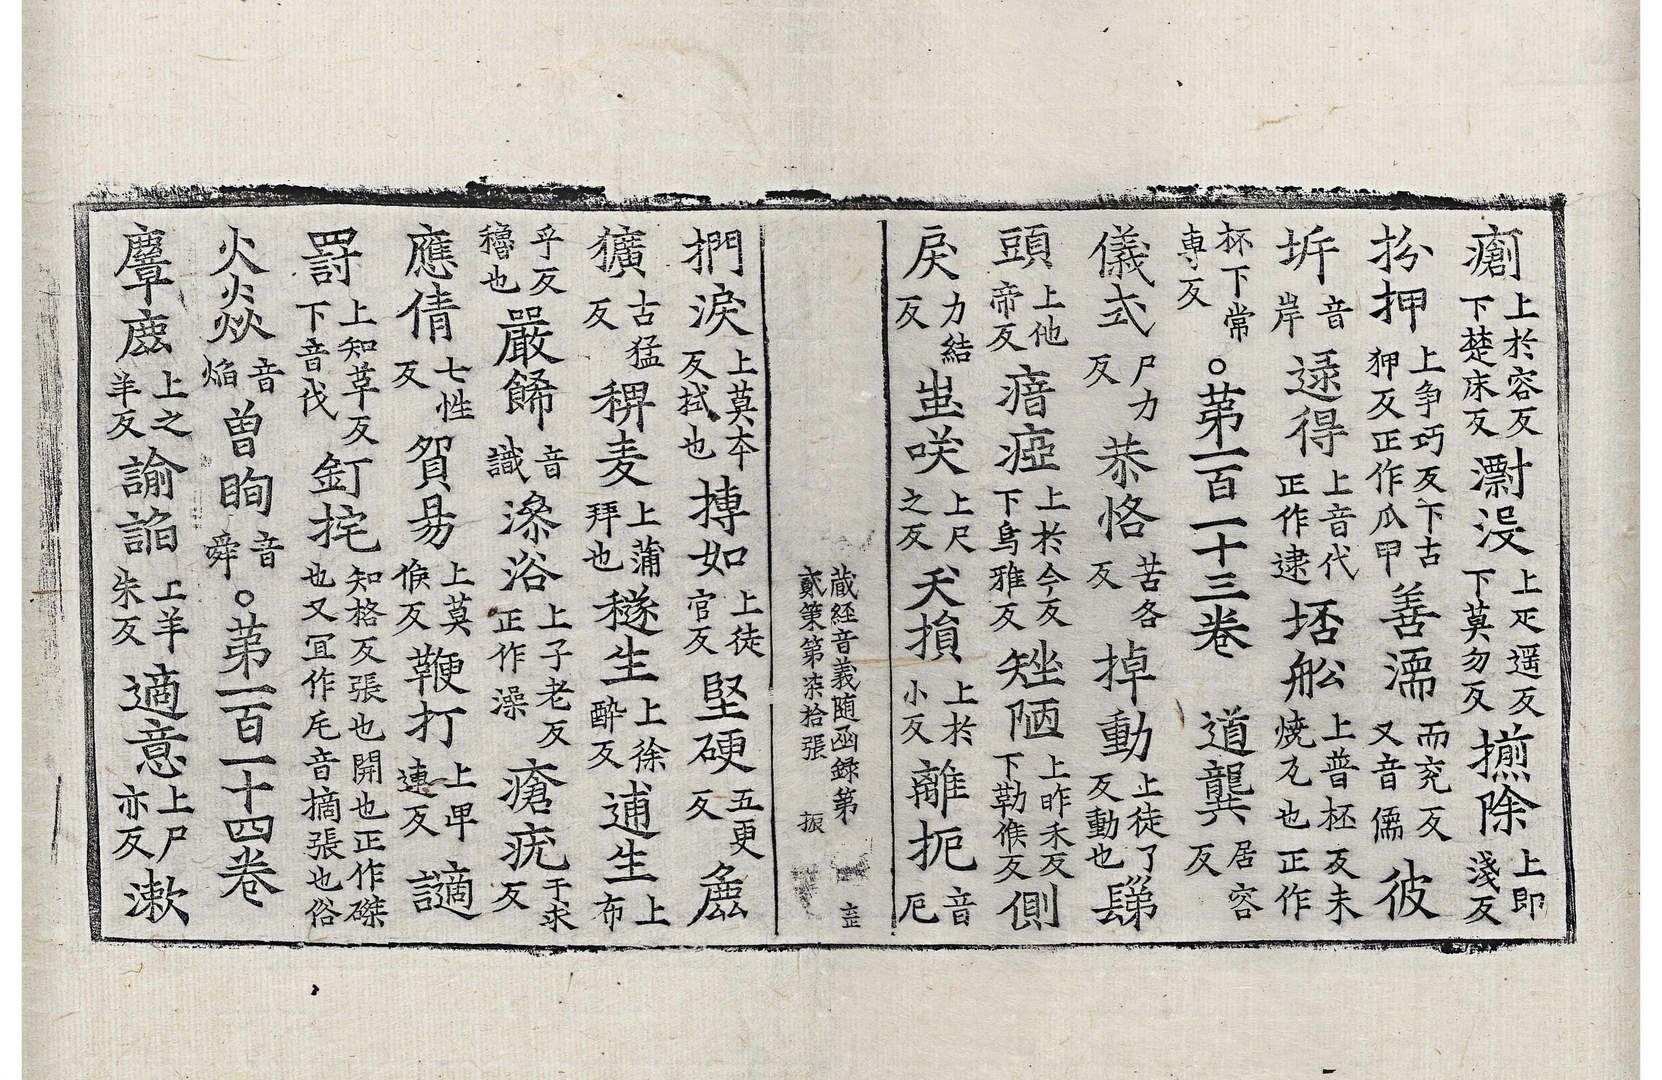 瘡上於容反下楚床反㵣没上疋遥反下莫勿反㨵除上即淺反
扮押上争巧反下古狎反正作瓜甲善濡而兖反又音儒彼
圻音岸逯得上音代正作逮坯舩上普杯反未燒瓦也正作
杯下常專反。苐一百一十三卷道龔居容反
儀式尸力反恭恪苦各反掉動上徒了反動也髴
頭上他帝反瘖瘂上於今反下烏雅反矬陋上昨禾反下勒候反側
戾力結反蚩咲上尺之反夭損上於小反離扼音厄
藏經音義随函録第貳第第柒拾張 振
捫淚上莫本反拭也摶如上徒官反堅硬五更反麁
獷古猛反稗麦上蒲拜反穟生上徐醉反逋生上布
乎反穭也嚴餙音識潒浴上子老反正作澡瘡疣于求反
應倩七性反貿易上莫候反鞭打上卑連反讁
罰上知革反下音伐釘挓知格反張也開也正作磔也又冝作厇音摘張也俗
火焱焱音焰曽眴音舜。苐一百一十四卷
麞麈上之羊反諭諂上羊朱反適意上尸亦反漱